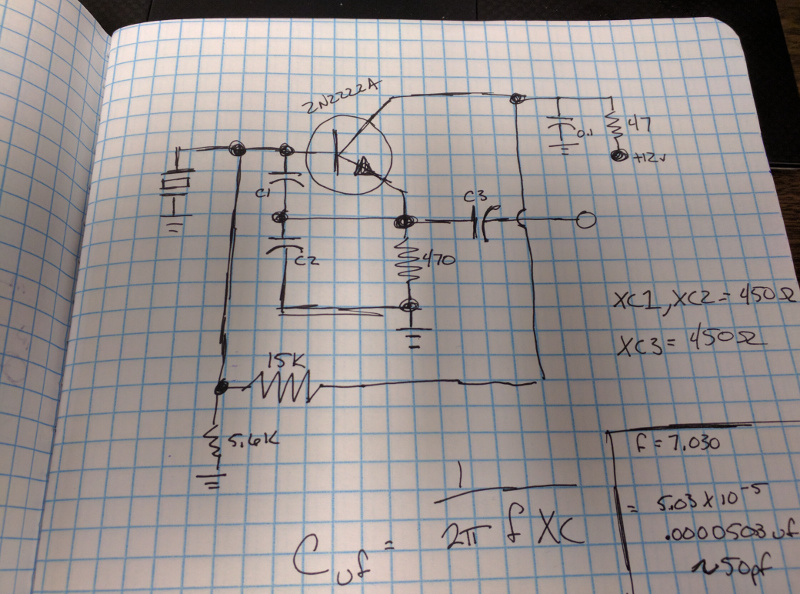 2N2222A
0.1
47
+12v
C1
C3
C2
470
XC1, XC2 = 450Ω
XC3 = 450Ω
15K
5.6K
f = 7.030
= 5.03 X 10⁻⁵
.0000503 uf
~50pf
Cuf = 1 / 2π f XC